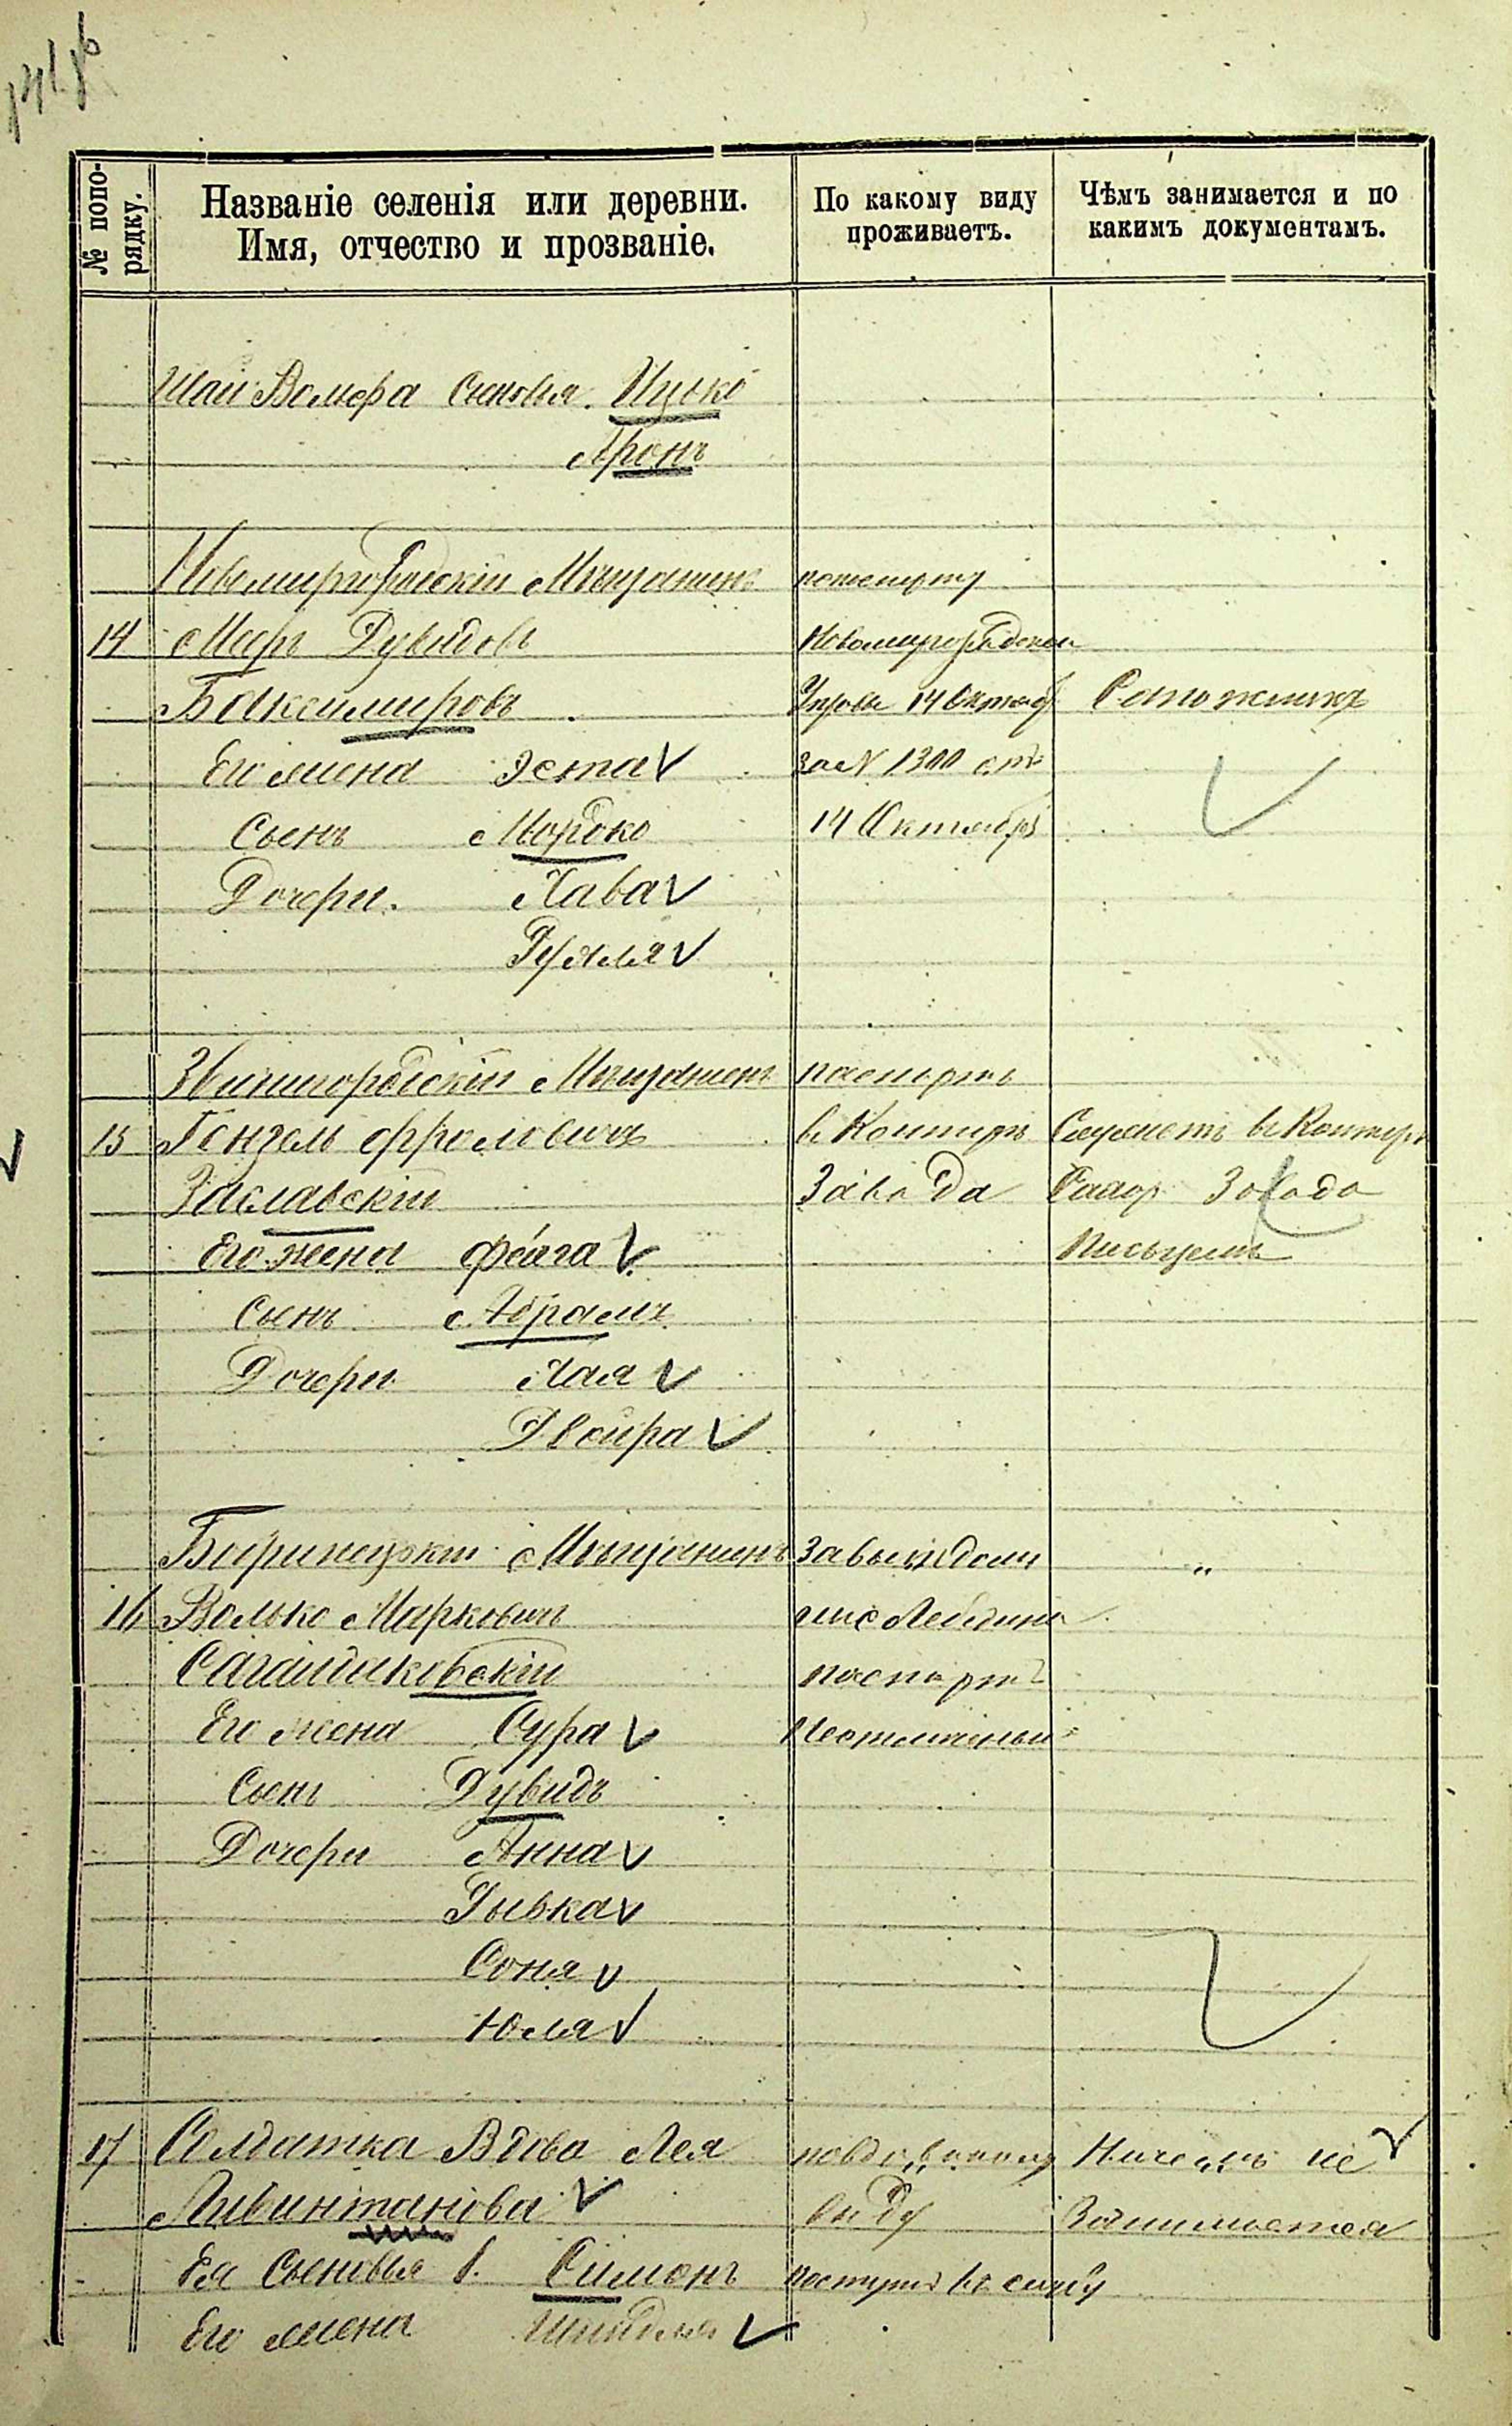 № попо-
рядку.
Названіе селенія или деревни.
Имя, отчество и прозваніе.
По какому виду
проживаетъ.
Чѣмъ занимается и по
какимъ документамъ.
Шаи Волмера Сыновья. Ицько
Аронъ
Новомиргородскій Мѣщанинъ паспорту
14 Меръ Дувидовъ Новомиргородской
Баксимировъ Управы 14 Октяб Сапожникъ
Его жена Эста за N 1300 отъ
Сынъ Мордко 14 Октября
Дочери. Хава
Рухля
Звенигородскій Мѣщанинъ паспортъ
15 Генцель Фроловичъ въ Конторѣ Служитъ въ Конторѣ
Заславскій Завода Сахар Завода
Его жена Фейга Писцемъ
Сынъ Абрамъ
Дочери Хая
Двойра
Мѣщанинъ За выездомъ "
16 Волько Марковичъ Лебедина
Сагайдаковскій паспортъ
Его жена Сура
Сынъ Дувидъ
Дочери Анна
Рывка
Соня
Юля
17 Солдатка Вдова Лея Ничемъ не
Ливинтанова виду Занимается
Ея Сыновья 1. Симонъ
Его жена